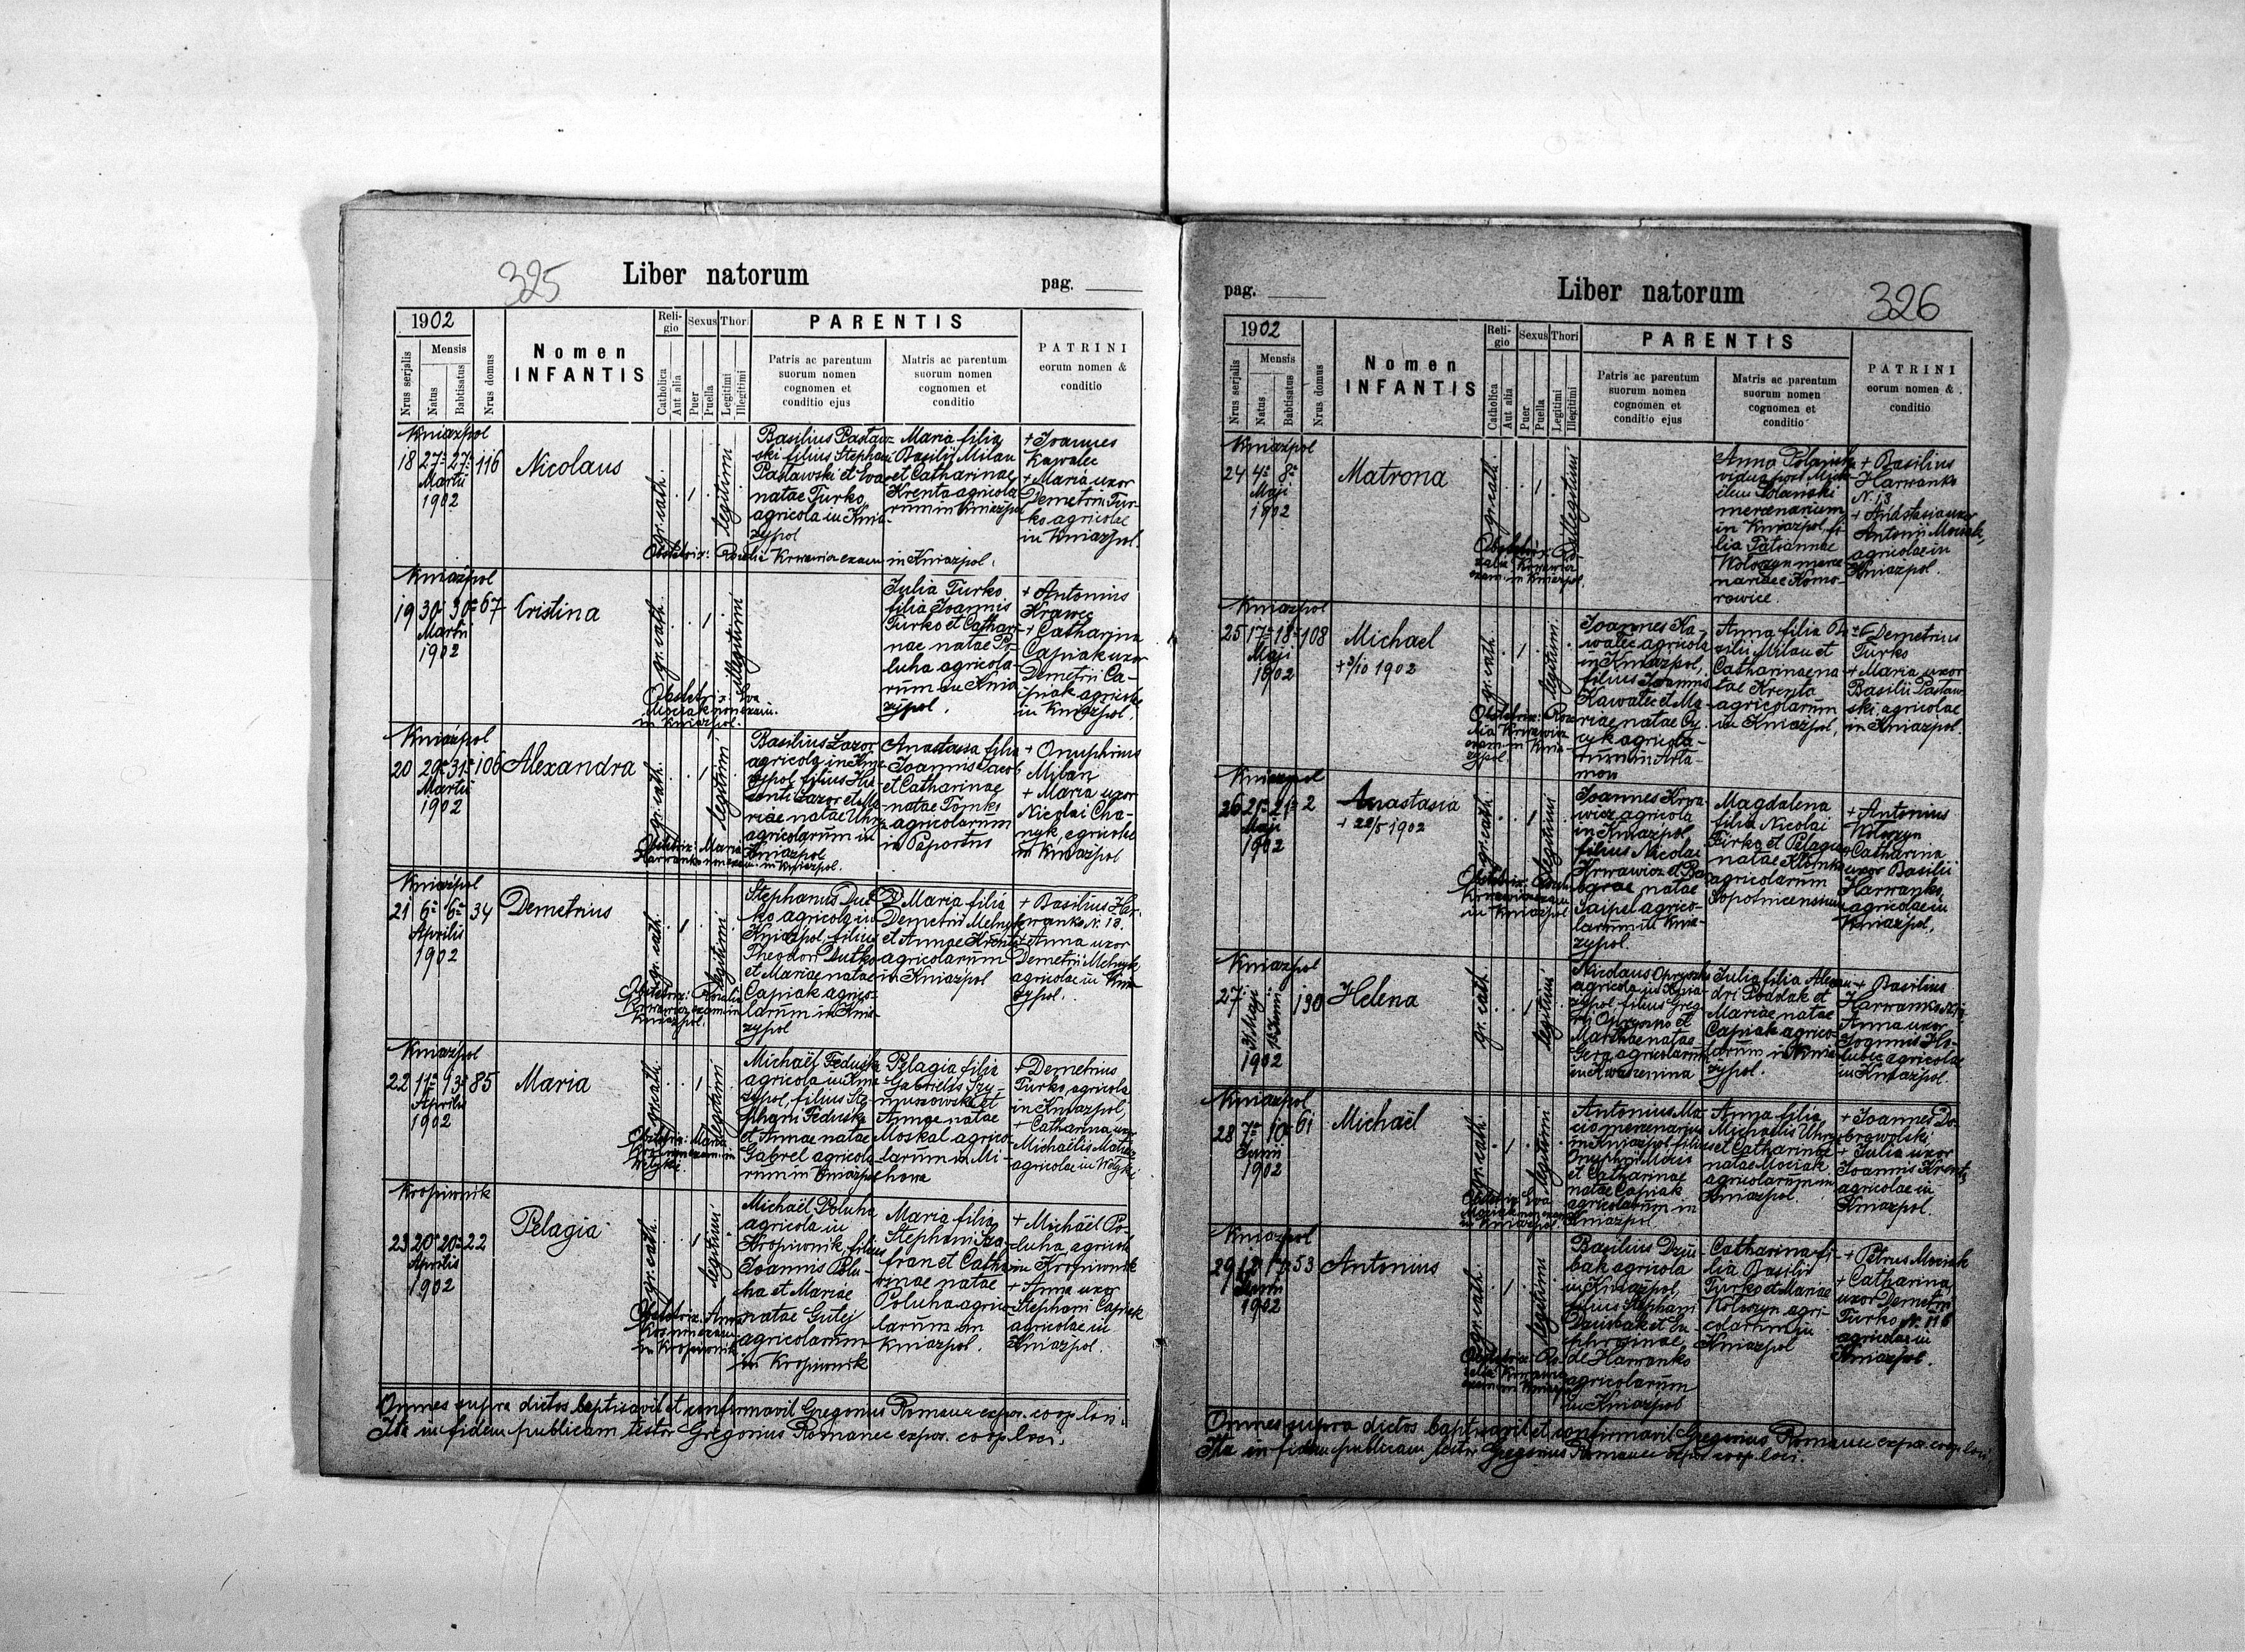 325
Liber natorum
pag.
1902
Mensis
Nrus serjalis
Natus
Babtisatus
Nrus domus
Nomen
INFANTIS
Reli-
gio
Catholica
Aut alia
Sexus
Puer
Puella
Thori
Legitimi
Illegitimi
PARENTIS
Patris ac parentum
suorum nomen
cognomen et
conditio ejus
Matris ac parentum
suorum nomen
cognomen et
conditio
PATRINI
eorum nomen &
conditio
Kniażpol
18 27 27 116
Martii
1902
Nicolaus
gr. cath.
legitimi
Basilius Pastaw-
ski filius Stephani
Pastawski et Evae
natae Turko,
agricola in Knia-
zypol
Maria filia
Basilii Milan
et Catharinae
Krenta agricola-
rum in Kniażpol
+ Joannes
Kawalec
+ Maria uxor
Demetrii Tur-
ko agricolae
in Kniażpol.
Obstetrix: Rosalia Krwawicz exam in Kniażpol.
Kniażpol
19 30 30 67
Martii
1902
Cristina
gr. cath.
illegitimi
Julia Turko
filia Joannis
Turko et Cathari-
nae natae Po-
luha agricola-
rum in Knia
zypol.
+ Antonius
Krawec
+ Catharina
Capiak uxor
Demetrii Ca-
piak agricolae
in Kniażpol.
Obstetrix: Eva
Mociak non exam.
in Kniażpol.
Kniażpol
20 29 31 106
Martii
1902
Alexandra
gr. cath.
legitimi
Basilius Lazor
agricola in Knia
zypol, filius
Lazor et Ma-
riae natae Uhryn
agricolarum in
Kniażpol
Anastasia filia
Joannis Jacob
et Catharinae
natae Tomks
agricolarum
in Paportno
+ Onuphrius
Milan
+ Maria uxor
Nicolai Cha-
nyk agricolae
in Kniażpol
Obstetrix: Maria
Harwanko non exam. in Kniażpol.
Kniażpol
21 6 6 34
Aprilis
1902
Demetrius
gr. cath.
legitimi
Stephanus Dut-
ko agricola in
Kniażpol, filius
Theodori Dutko
et Mariae natae
Capiak agrico-
larum in Knia
zypol
Maria filia
Demetrii Melnyk
et Annae Krenta
agricolarum
in Kniażpol
+ Basilius Har-
wanko N. 13.
+ Anna uxor
Demetrii Melnyk
agricolae in Knia
zypol.
Obstetrix: Rosalia
Krwawicz exam in
Kniażpol.
Kniażpol
22 11 13 85
Aprilis
1902
Maria
gr. cath.
legitimi
Michaël Feduska
agricola in Knia
zypol, filius Ste-
phani Feduska
et Annae natae
Gabrel agricola-
rum in Kniażpol
Pelagia filia
Gabrielis Szy-
muszowski et
Annae natae
Moskal agrico-
larum in Mi-
howa
+ Demetrius
Turko, agricola
in Kniażpol,
+ Catharina uxor
Michaëlis
agricolae in Welyki
Obstetrix: Maria
non exam. in
Welyki.
Kropiwnik
23 20 20 22
Aprilis
1902
Pelagia
gr. cath.
legitimi
Michaël Poluha
agricola in
Kropiwnik, filius
Joannis Polu-
ha et Mariae
natae Gutej
agricolarum
in Kropiwnik
Maria filia
Stephani Sza-
fran et Catha-
rinae natae
Poluha agrico
larum in
Kniażpol.
+ Michaël Po-
luha, agricola
in Kropiwnik
+ Anna uxor
Stephani Capiak
agricolae in
Kniażpol.
Obstetrix: Anna
exam.
in Kropiwnik.
Omnes supra dictos baptisavit et confirmavit Gregorius Romanec expos. coop. loci.
Ita in fidem publicam testor Gregorius Romanec expos. coop. loci.
pag.
Liber natorum
326
1902
Mensis
Nrus serjalis
Natus
Babtisatus
Nrus domus
Nomen
INFANTIS
Reli-
gio
Catholica
Aut alia
Sexus
Puer
Puella
Thori
Legitimi
Illegitimi
PARENTIS
Patris ac parentum
suorum nomen
cognomen et
conditio ejus
Matris ac parentum
suorum nomen
cognomen et
conditio
PATRINI
eorum nomen &
conditio
Kniażpol
24 4 8
Maji
1902
Matrona
gr. cath.
illegitimi
Anna Solańska
vidua post Mich-
aëlem Solański
mercenarium
in Kniażpol, fi-
lia Tatiannae
Kołoszyn merce
nariae e Komo-
rowice.
+ Basilius
Harwanko
N. 13
+ Anastasia uxor
Antonii Mociak,
agricolae in
Kniażpol.
Obstetrix: Ro-
salia Krwawicz
exam. in Kniażpol.
Kniażpol
25 17 18 108
Maji
1902
Michael
+ 3/10 1902
gr. cath.
legitimi.
Joannes Ka-
walec agricola
in Kniażpol,
filius Joannis
Kawalec et Ma-
riae natae Cy-
cyk agricola-
rum in Arta-
mow
Anna filia Ba-
silii Milan et
Catharinae na-
tae Krenta
agricolarum
in Kniażpol,
+ Demetrius
Turko
+ Maria uxor
Basilii Pastaw-
ski agricolae
in Kniażpol.
Obstetrix: Rosa
lia Krwawicz
exam in Knia-
zypol.
Kniażpol
26 21 21 2
Maji
1902
Anastasia
+ 22/5 1902
gr. cath.
legitimi
Joannes Krwa-
wicz agricola
in Kniażpol
filius Nicolai
Krwawicz et Ba-
rbarae natae
Saipel agrico-
larum in Knia-
zypol.
Magdalena
filia Nicolai
Turko et Pelagiae
natae Klimko
agricolarum
Sopotnicensium
+ Antonius
Kołoszyn
+ Catharina
uxor Basilii
Harwanko,
agricolae in
Kniażpol.
Obstetrix: Rosalia
Krwawicz exam
in Kniażpol
Kniażpol
27 31 Maji 15 Junii 130
1902
Helena
gr. cath.
legitimi
Nicolaus Opryszko
agricola in Knia-
zypol filius Greg-
orii Opryszko et
Marthae natae
Gera agricolarum
in Kwaszenina
Julia filia Alexan-
dri Podolak et
Mariae natae
Capiak agrico-
larum in Knia
zypol.
+ Basilius
Harwanko N. 13
Anna uxor
Joannis Ho-
lubec agricolae
in Kniażpol.
Kniażpol
28 7 10 61
Junii
1902
Michaël
gr. cath.
legitimi
Antonius Mo-
cio mercenarius
in Kniażpol filius
Onuphrii Mocio
et Catharinae
natae Capiak
agricolarum in
Kniażpol
Anna filia
Michaëlis Uhryn
et Catharinae
natae Mociak
agricolarum in
Kniażpol.
+ Joannes Do-
browolski
+ Julia uxor
Joannis Krenta
agricolae in
Kniażpol.
Obstetrix Eva
Mociak non exam
in Kniażpol
Kniażpol
29 12 53
Junii
1902
Antonius
gr. cath.
legitimi
Basilius Dziu-
bak agricola
in Kniażpol,
filius Stephani
Dziubak et Eu-
phrosinae
de Harwanko
agricolarum
in Kniażpol
Catharina fi-
lia Basilii
Turko et Mariae
Kołoszyn agri-
colarum in
Kniażpol
+ Petrus Mociak
+ Catharina,
uxor Demetrii
Turko N. 116
agricolae in
Kniażpol.
Obstetrix: Ro-
salia Krwawicz
exam in Kniażpol
Omnes supra dictos baptisavit et confirmavit Gregorius Romanec expos. coop. loci
Ita in fidem publicam testor Gregorius Romanec expos. coop. loci.